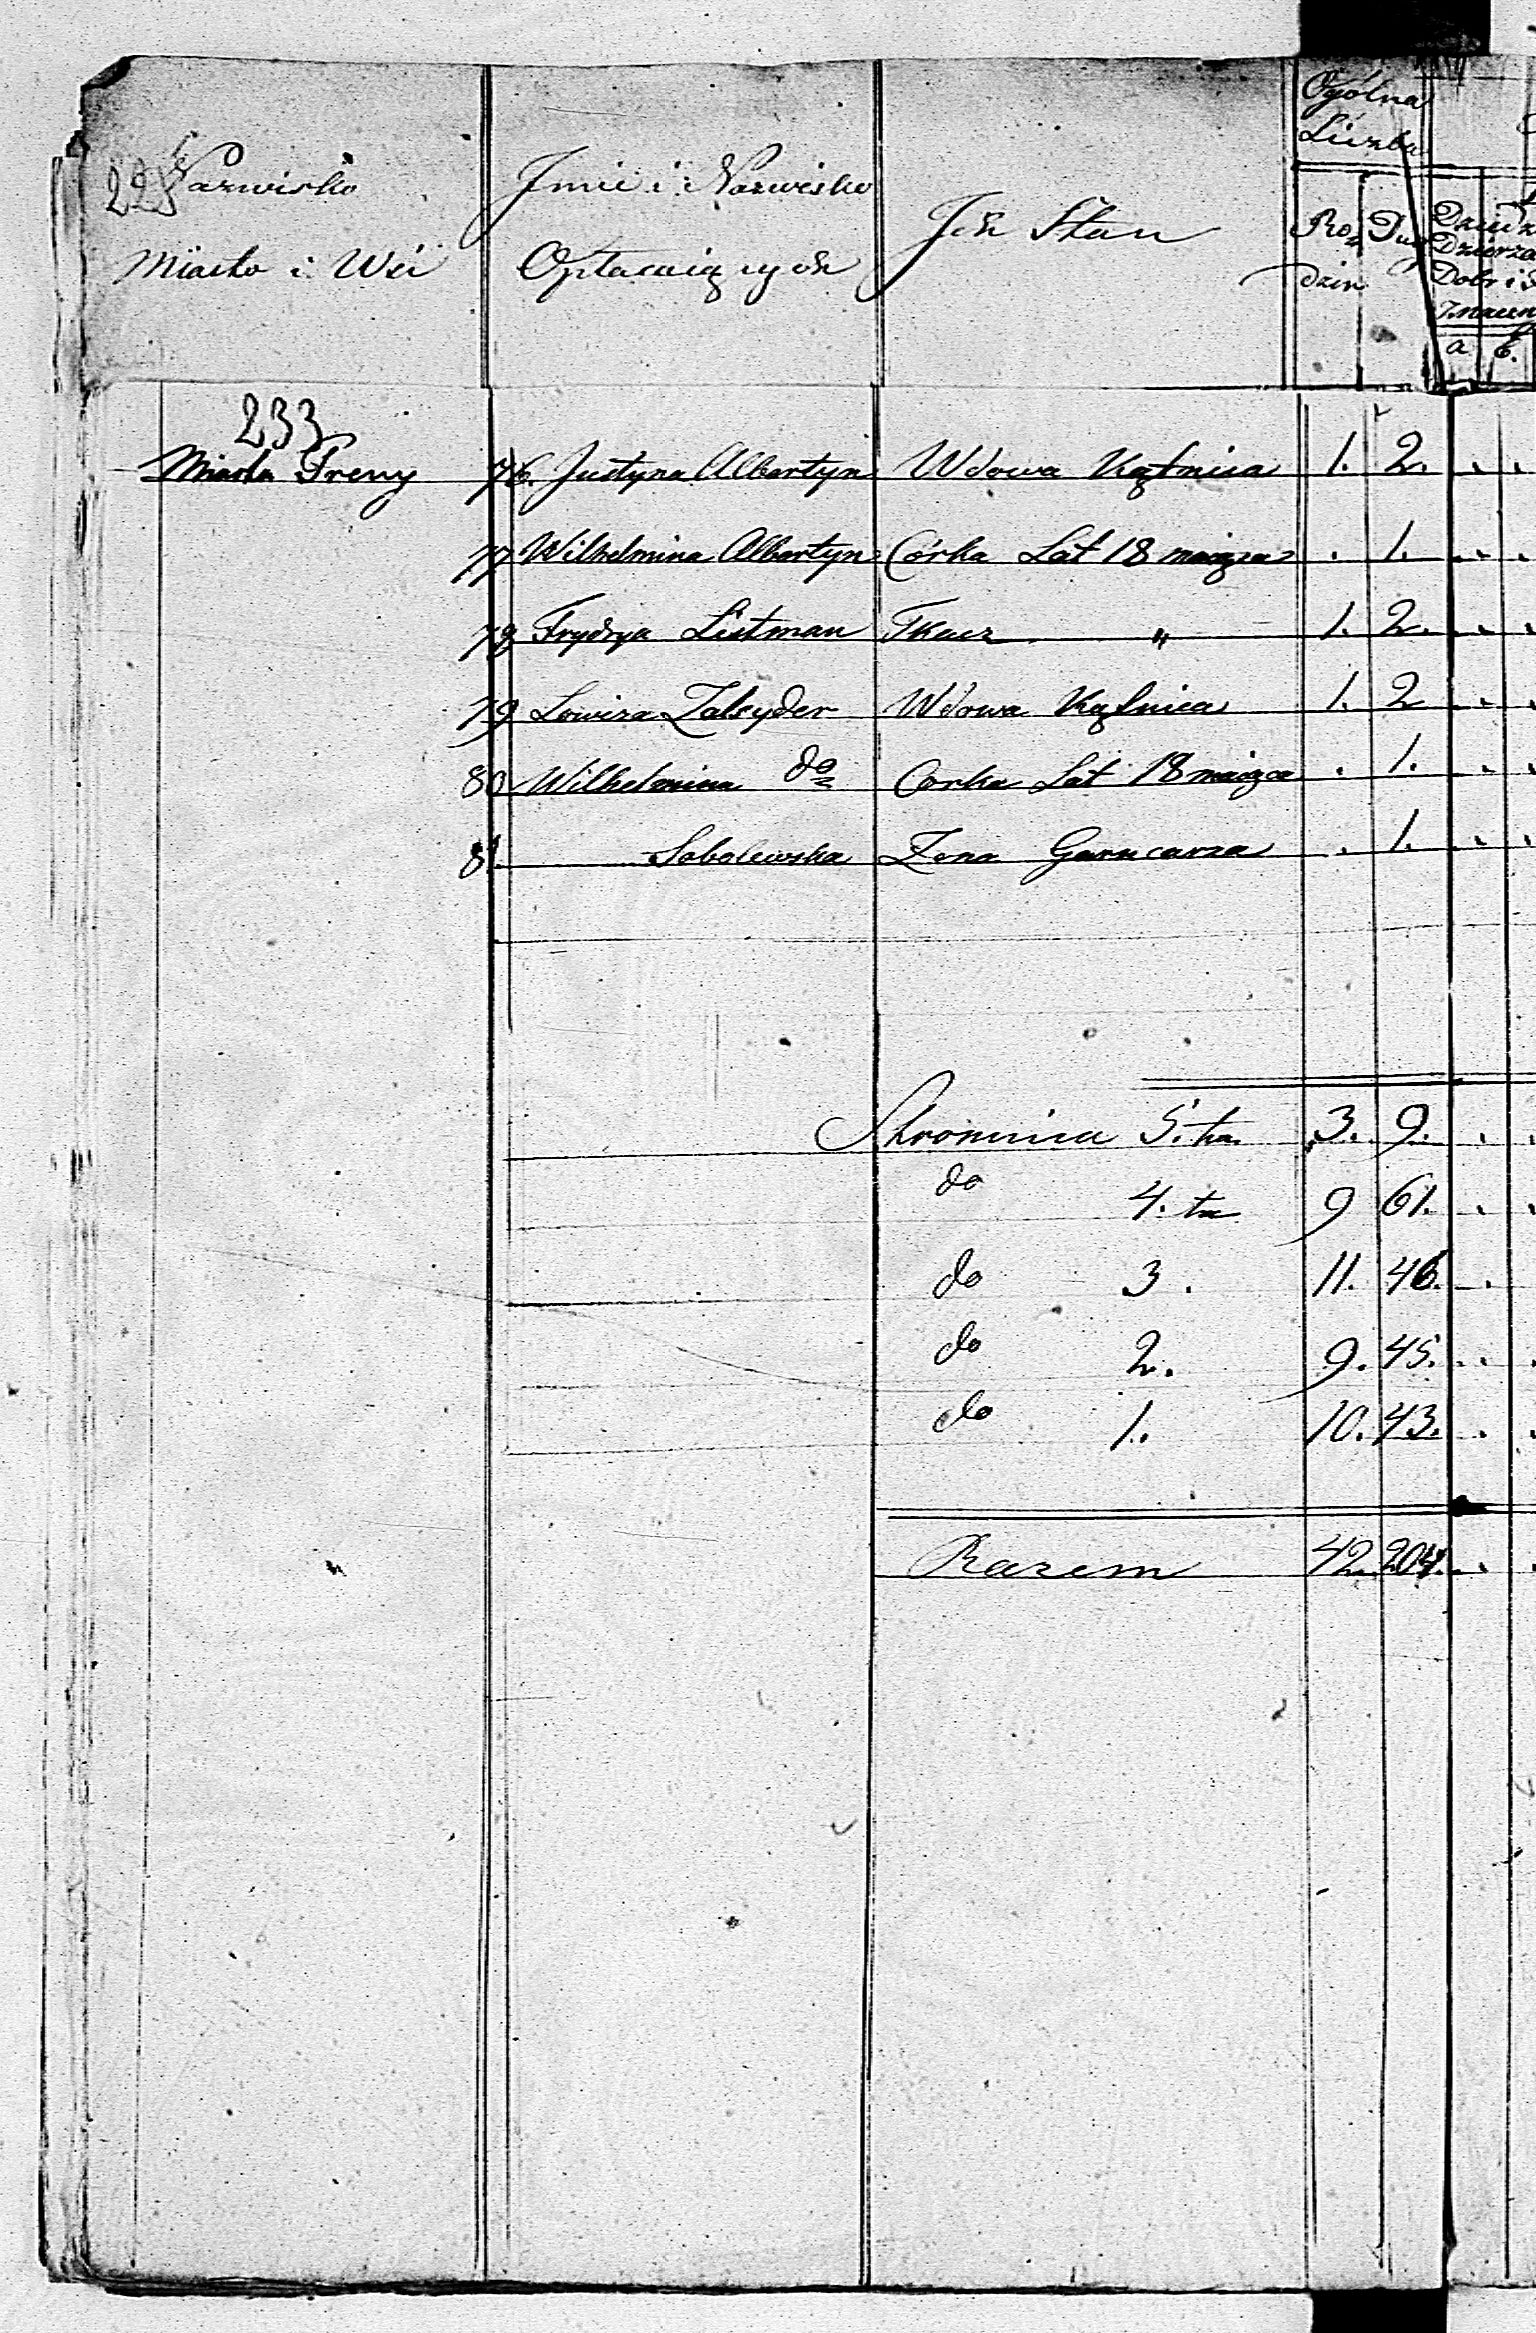 Ogólna
Liczba
Nazwisko Imie i Nazwisko
Miasto i Wsi Opłacaiących Ich Stan
Ro dzin Dusz
a b.
233
Miasto Preny 76. Justyna Albertyn Wdowa Kątnica 1. 2.
77 Wilhelmina Albertyn Córka Lat 18 maiąca . 1.
78 Frydryk Listman Tkacz " 1. 2.
79 Lowiza Zalsyder Wdowa Kątnica 1. 2
80 Wilhelmina do Corka Lat 18 maiąca . 1.
81. Sobolewska Zona Garncarza . 1.
Stronnica 5.ta 3. 9.
do 4.ta 9 61.
do 3. 11. 46.
do 2. 9. 45.
do 1. 10. 43.
Razem 42. 204.